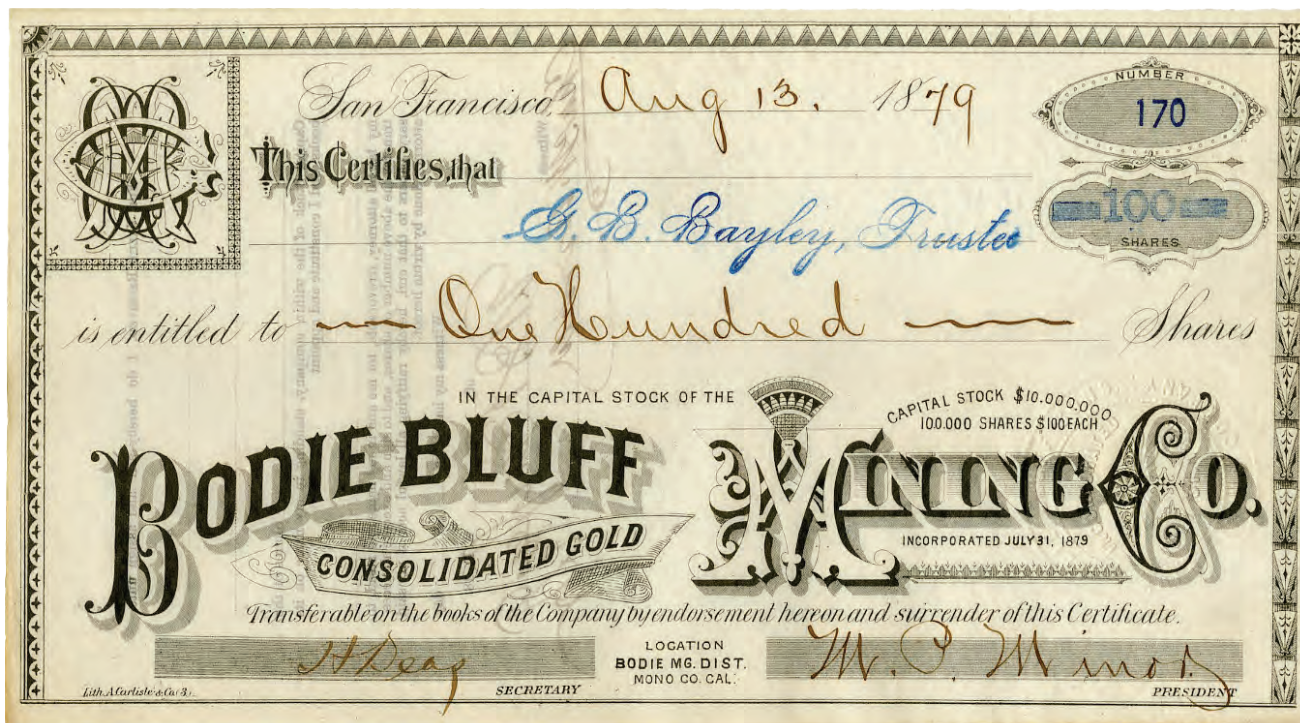 San Francisco, Aug 13. 1879
NUMBER
170
This Certifies, that
G. B. Bayley, Trustee
100
SHARES
is entitled to One Hundred Shares
IN THE CAPITAL STOCK OF THE
CAPITAL STOCK $10.000.000.
100.000 SHARES $100 EACH
BODIE BLUFF
CONSOLIDATED GOLD
MINING CO.
INCORPORATED JULY 31, 1879
Transferable on the books of the Company by endorsement hereon and surrender of this Certificate.
LOCATION
BODIE MG. DIST.
MONO CO. CAL.
SECRETARY
M. P. Minor
PRESIDENT
Lith. A. Carlisle & Co.